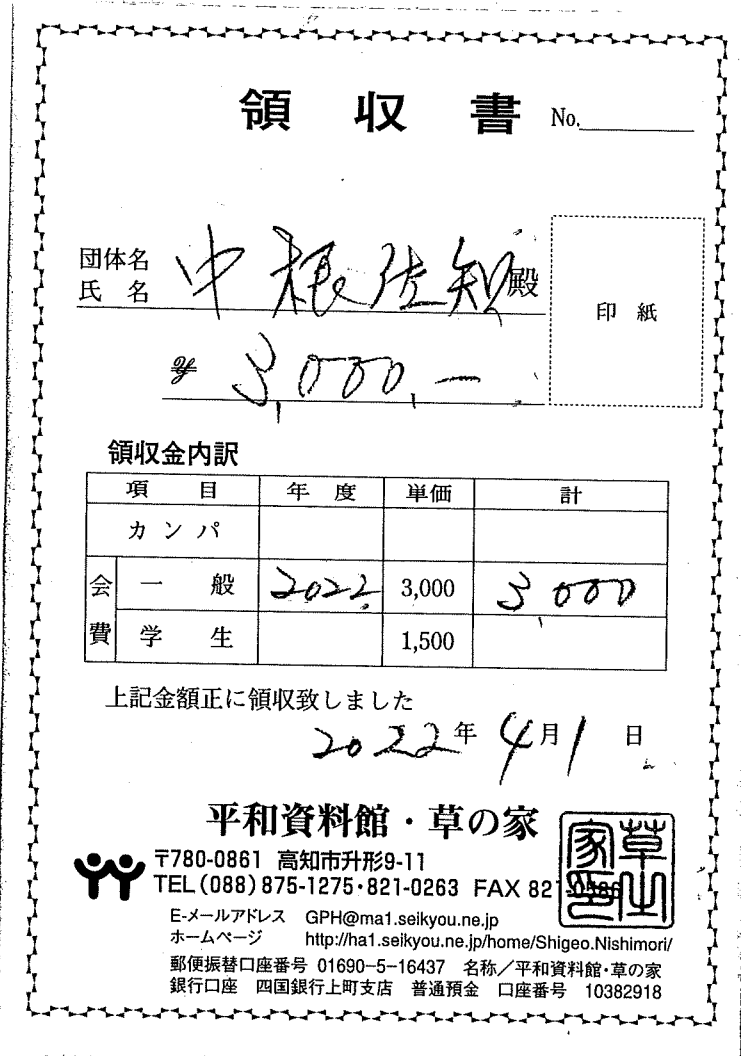 領 収 書 No.
団体名
氏 名 中根佐知殿
¥ 3,000,ー
印 紙
領収金内訳
項 目 年 度 単価 計
カンパ
会費 一 般 2022. 3,000 3,000
学 生 1,500
上記金額正に領収致しました
2022年 4月1日
平和資料館・草の家
〒780-0861 高知市升形9-11
TEL(088)875-1275・821-0263 FAX 821
E-メールアドレス GPH@ma1.seikyou.ne.jp
ホームページ http://ha1.seikyou.ne.jp/home/Shigeo.Nishimori/
郵便振替口座番号 01690-5-16437 名称/平和資料館・草の家
銀行口座 四国銀行上町支店 普通預金 口座番号 10382918